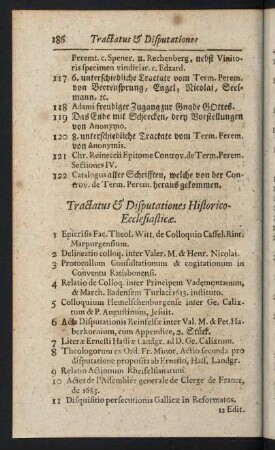 186 Tractatus & Disputationes
Peremt. c. Spener. II. Rechenberg, nebst Vinitoris specimen vindiciar. c. Edzard.
117 6. unterschiedliche Tractate vom Term. Perem.
von Beerensprung, Engel, Nicolai, Seelmann, ec.
118 Adami freudiger Zugang zur Gnade GOttes.
119 Das Ende mit Schrecken, drey Vorstellungen
von Anonymo.
120 8. unterschiedliche Tractate vom Term. Perem.
von Anonymis.
121 Chr. Reineccii Epitome Controv. de Term. Perem.
Sectiones IV.
122 Catalogus aller Schrifften, welche von der Controv. de Term. Perem. heraus gekommen.
Tractatus & Disputationes Historico-
Ecclesiasticæ.
1 Epicrisis Fac. Theol. Witt. de Colloquio Cassel. Rint.
Marpurgensium.
2 Delineatio colloq. inter Valer. M. & Henr. Nicolai.
3 Protocollum Consultationum & cogitationum in
Conventu Ratisbonensi.
4 Relatio de Colloq. inter Principem Vademontanum,
& March. Badensem Turlaci 1613. institum.
5 Colloquium Hemelschenburgense inter Ge. Calixtum & P. Augustinum, Jesuit.
6 Acta Disputationis Reinfelsæ inter Val. M. & Pet. Haberkornium, cum Appendice, 2. Stück.
7 Literæ Ernesti Hassiæ Landgr. ad D. Ge. Calixtum.
8 Theologorum ex Ord. Fr. Minor. Actio secunda pro
disputatione proposita ab Ernesto, Hass. Landgr.
9 Relatio Actionum Rheinfelsanarum.
10 Actes de l'Assemblée generale de Clerge de France,
de 1685.
11 Disquisitio persecutionis Gallicæ in Reformatos.
12 Edit.